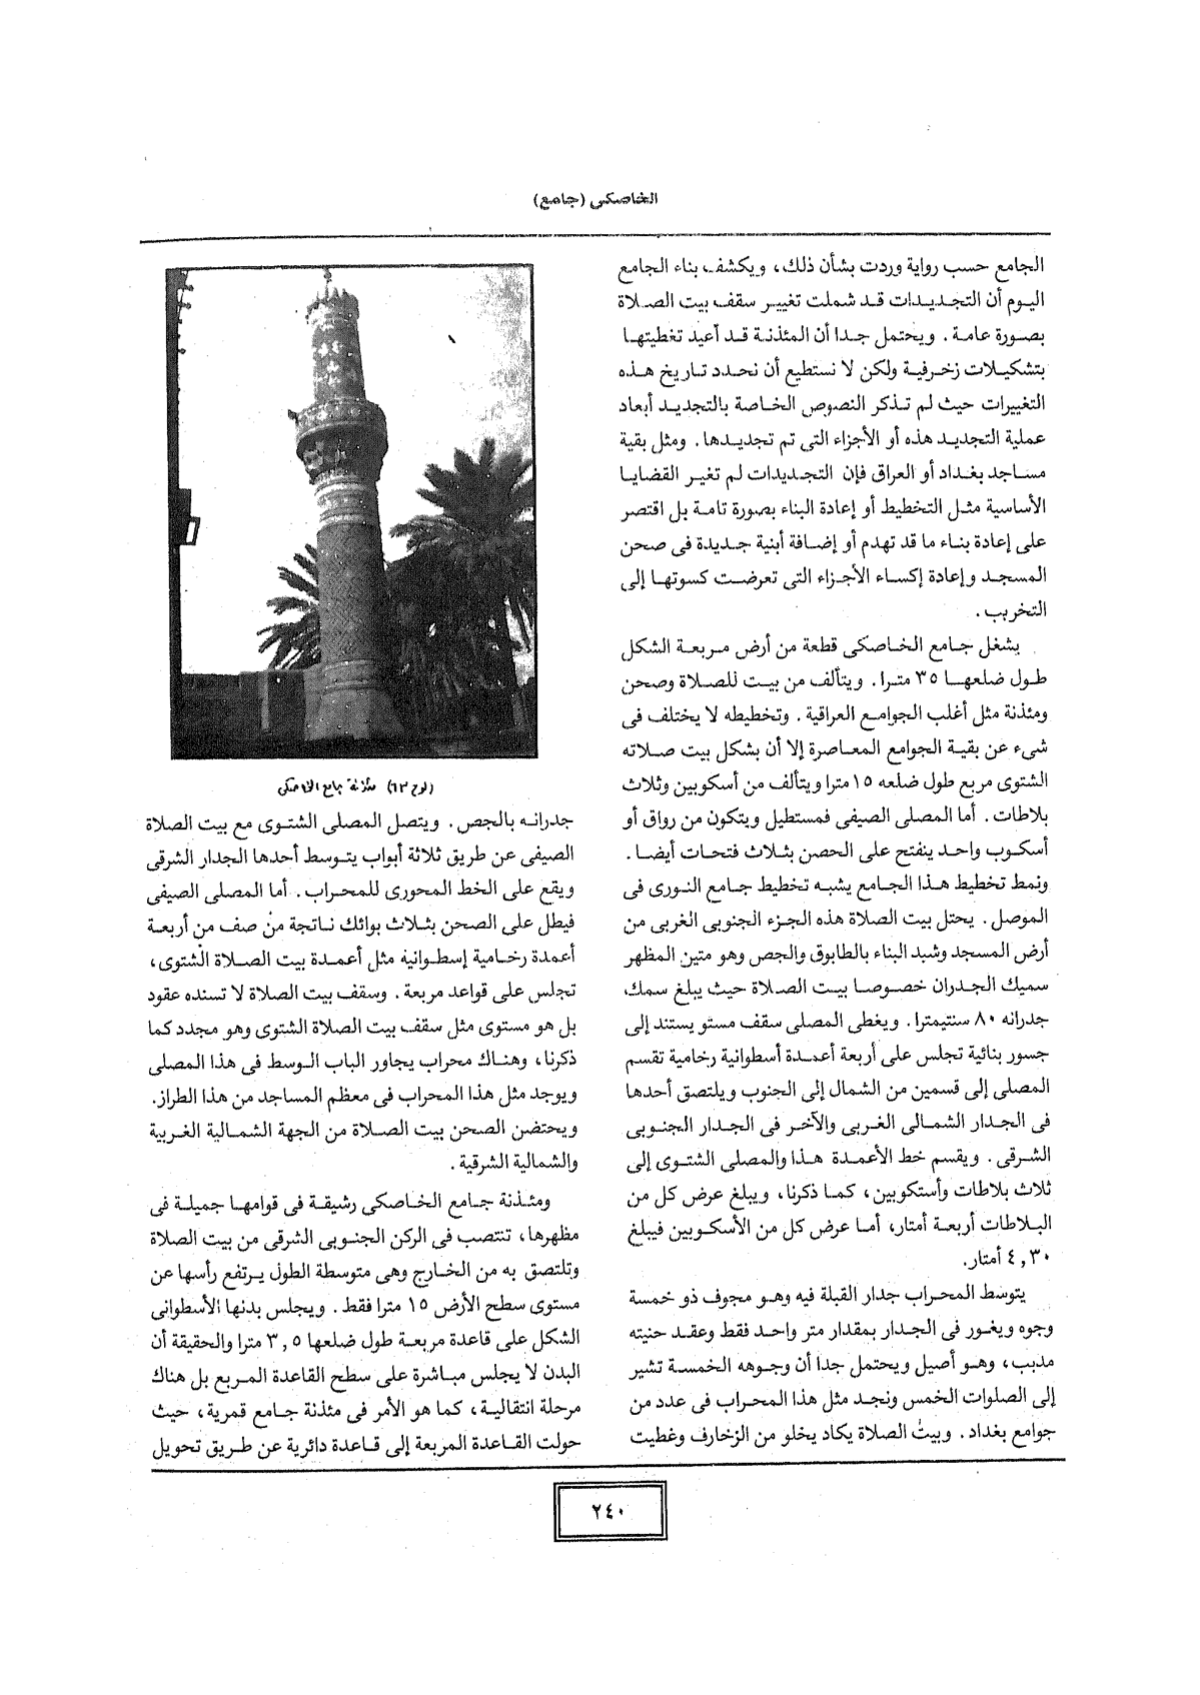 الخاصكى (جامع)
الجامع حسب رواية وردت بشأن ذلك، ويكشف بناء الجامع
اليوم أن التجديدات قد شملت تغيير سقف بيت الصلاة
بصورة عامة. ويحتمل جدا أن المئذنة قد أعيد تغطيتها
بتشكيلات زخرفية ولكن لا نستطيع أن نحدد تاريخ هذه
التغييرات حيث لم تذكر النصوص الخاصة بالتجديد أبعاد
عملية التجديد هذه أو الأجزاء التى تم تجديدها. ومثل بقية
مساجد بغداد أو العراق فإن التجديدات لم تغير القضايا
الأساسية مثل التخطيط أو إعادة البناء بصورة تامة بل اقتصر
على إعادة بناء ما قد تهدم أو إضافة أبنية جديدة فى صحن
المسجد وإعادة إكساء الأجزاء التى تعرضت كسوتها إلى
التخريب.
يشغل جامع الخاصكى قطعة من أرض مربعة الشكل
طول ضلعها ٣٥ مترا. ويتألف من بيت للصلاة وصحن
ومئذنة مثل أغلب الجوامع العراقية. وتخطيطه لا يختلف فى
شىء عن بقية الجوامع المعاصرة إلا أن بشكل بيت صلاته
الشتوى مربع طول ضلعه ١٥ مترا ويتألف من أسكوبين وثلاث
بلاطات. أما المصلى الصيفى فمستطيل ويتكون من رواق أو
أسكوب واحد ينفتح على الحصن بثلاث فتحات أيضا.
ونمط تخطيط هذا الجامع يشبه تخطيط جامع النورى فى
الموصل. يحتل بيت الصلاة هذه الجزء الجنوبى الغربى من
أرض المسجد وشيد البناء بالطابوق والجص وهو متين المظهر
سميك الجدران خصوصا بيت الصلاة حيث يبلغ سمك
جدرانه ٨٠ سنتيمترا. ويغطى المصلى سقف مستو يستند إلى
جسور بنائية تجلس على أربعة أعمدة أسطوانية رخامية تقسم
المصلى إلى قسمين من الشمال إلى الجنوب ويلتصق أحدها
فى الجدار الشمالى الغربى والآخر فى الجدار الجنوبى
الشرقى. ويقسم خط الأعمدة هذا والمصلى الشتوى إلى
ثلاث بلاطات وأستكوبين، كما ذكرنا، ويبلغ عرض كل من
البلاطات أربعة أمتار، أما عرض كل من الأسكوبين فيبلغ
٤,٣٠ أمتار.
يتوسط المحراب جدار القبلة فيه وهو مجوف ذو خمسة
وجوه ويغور فى الجدار بمقدار متر واحد فقط وعقد حنيته
مدبب، وهو أصيل ويحتمل جدا أن وجوهه الخمسة تشير
إلى الصلوات الخمس ونجد مثل هذا المحراب فى عدد من
جوامع بغداد. وبيت الصلاة يكاد يخلو من الزخارف وغطيت
(لوح ٦٣) مئذنة جامع الخاصكى
جدرانه بالجص. ويتصل المصلى الشتوى مع بيت الصلاة
الصيفى عن طريق ثلاثة أبواب يتوسط أحدها الجدار الشرقى
ويقع على الخط المحورى للمحراب. أما المصلى الصيفى
فيطل على الصحن بثلاث بوائك ناتجة من صف من أربعة
أعمدة رخامية إسطوانية مثل أعمدة بيت الصلاة الشتوى،
تجلس على قواعد مربعة. وسقف بيت الصلاة لا تسنده عقود
بل هو مستوى مثل سقف بيت الصلاة الشتوى وهو مجدد كما
ذكرنا، وهناك محراب يجاور الباب الوسط فى هذا المصلى
ويوجد مثل هذا المحراب فى معظم المساجد من هذا الطراز.
ويحتضن الصحن بيت الصلاة من الجهة الشمالية الغربية
والشمالية الشرقية.
ومئذنة جامع الخاصكى رشيقة فى قوامها جميلة فى
مظهرها، تنتصب فى الركن الجنوبى الشرقى من بيت الصلاة
وتلتصق به من الخارج وهى متوسطة الطول يرتفع رأسها عن
مستوى سطح الأرض ١٥ مترا فقط. ويجلس بدنها الأسطوانى
الشكل على قاعدة مربعة طول ضلعها ٣,٥ مترا والحقيقة أن
البدن لا يجلس مباشرة على سطح القاعدة المربع بل هناك
مرحلة انتقالية، كما هو الأمر فى مئذنة جامع قمرية، حيث
حولت القاعدة المربعة إلى قاعدة دائرية عن طريق تحويل
٢٤٠